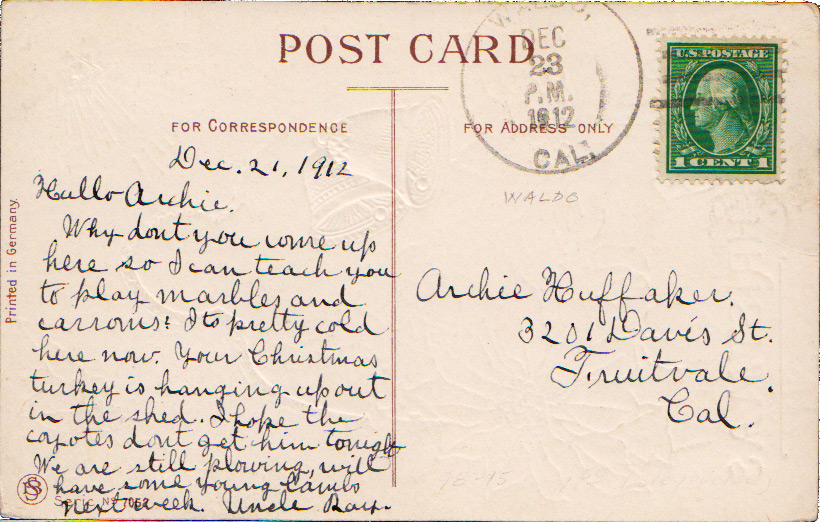 POST CARD
WALDO,
DEC
23
P.M.
1912
CAL.
U.S. POSTAGE
1 CENT 1
FOR CORRESPONDENCE
FOR ADDRESS ONLY
WALDO
Dec. 21, 1912
Hullo Archie.
Why dont you come up
here so I can teach you
to play marbles and
carroms? Its pretty cold
here now. Your Christmas
turkey is hanging up out
in the shed. I hope the
coyotes dont get him tonight
We are still plowing, will
have some young lambs
next week. Uncle Ray.
Archie Huffaker.
3201 Davis St.
Fruitvale.
Cal.
Printed in Germany.
Serie No 7052